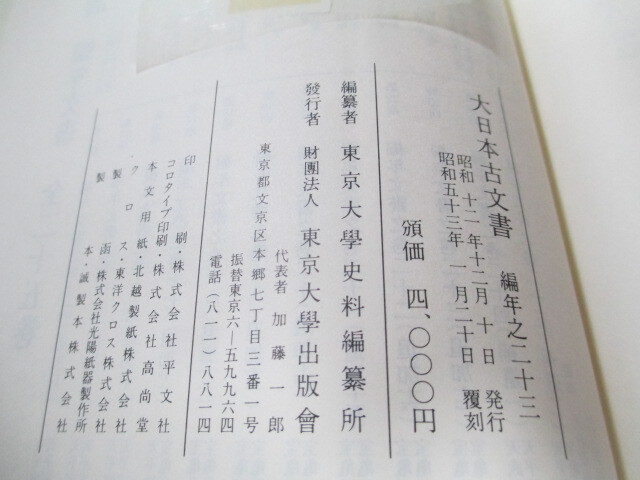 大日本古文書　編年之二十三
昭和　十二　年十二月　十　日　発行
昭和五十三年　一　月二十日　覆刻
頒価　四、〇〇〇円
編纂者　東京大學史料編纂所
發行者　財團法人　東京大學出版會
代表者　加藤一郎
東京都文京区本郷七丁目三番一号
振替東京六―五九九六四
電話（八一一）八八一四
印　刷・株式会社平文社
コロタイプ印刷・株式会社高尚堂
本文用紙・北越製紙株式会社
クロス・東洋クロス株式会社
製　函・株式会社光陽紙器製作所
製　本・誠製本株式会社